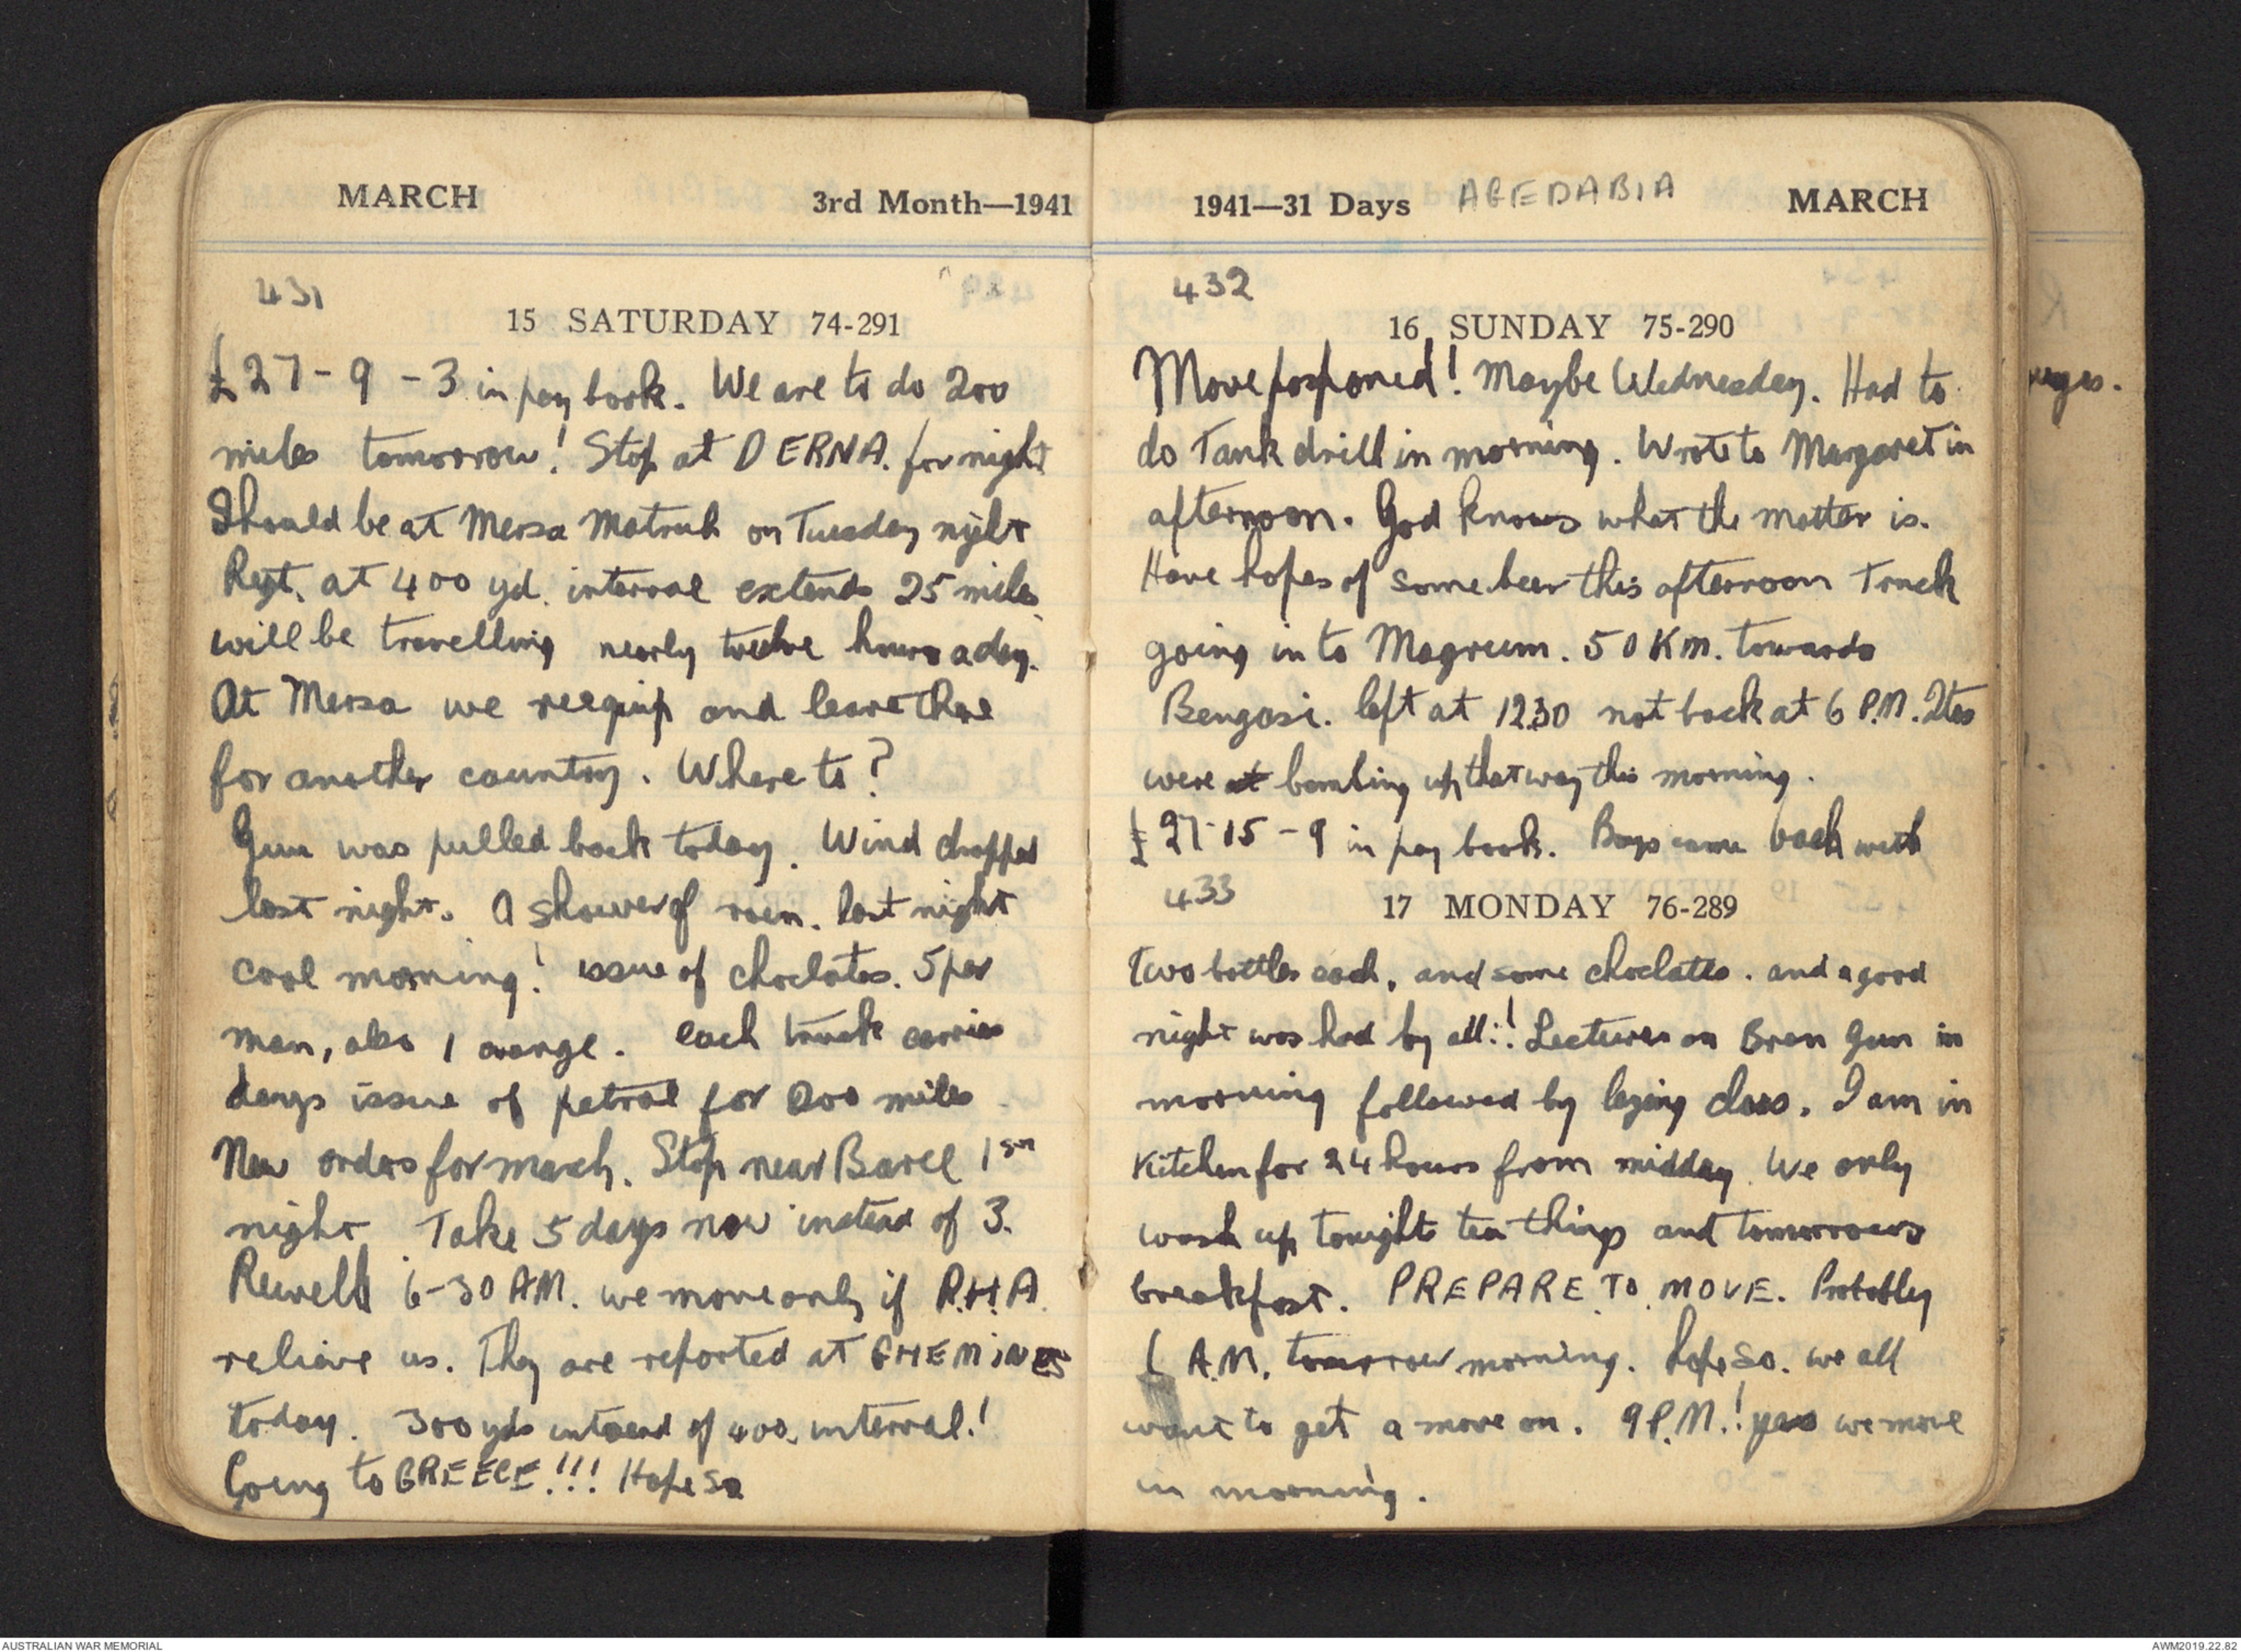 MARCH 3rd Month—1941
431
15 SATURDAY 74-291
£27-9-3 in pay book. We are to do 200
miles tomorrow! Stop at DERNA. for night
Should be at Mersa Matruh on Tuesday night
Regt. at 400 yd. interval extends 25 miles
will be travelling nearly twelve hours a day.
At Mersa we reequip and leave there
for another country. Where to?
Gun was pulled back today. Wind dropped
last night. A shower of rain. last night
cool morning! issue of choclates. 5 per
man, also 1 orange. each truck carries
days issue of petrol for 200 miles
New orders for march. Stop near Barce 1st
night Take 5 days now instead of 3.
Revelle 6-30 AM. we move only if R.H.A.
relieve us. They are reported at GHEMINES
today. 300 yds intsead of 400. interval!
Going to GREECE!!! Hope so
1941—31 Days AGEDABIA MARCH
432
16 SUNDAY 75-290
Move postponed! Maybe Wednesday. Had to
do Tank drill in morning. Wrote to Margaret in
afternoon. God knows what the matter is.
Have hopes of some beer this afternoon Truck
going in to Magrum. 50 Km. towards
Bengasi. left at 12.30 not back at 6 P.M. Ities
were at bombing up that way this morning.
£27-15-9 in pay book. Boys came back with
433
17 MONDAY 76-289
two bottles each, and some choclates. and a good
night was had by all!! Lectures on Bren Gun in
morning followed by laying class. I am in
Kitchen for 24 hours from midday. We only
wash up tonights tea things and tomorrows
breakfast. PREPARE TO MOVE. Probably
A.M. tomorrow morning. hope so. we all
want to get a move on. 9 P.M.! yes we move
in morning.
AUSTRALIAN WAR MEMORIAL
AWM2019.22.82